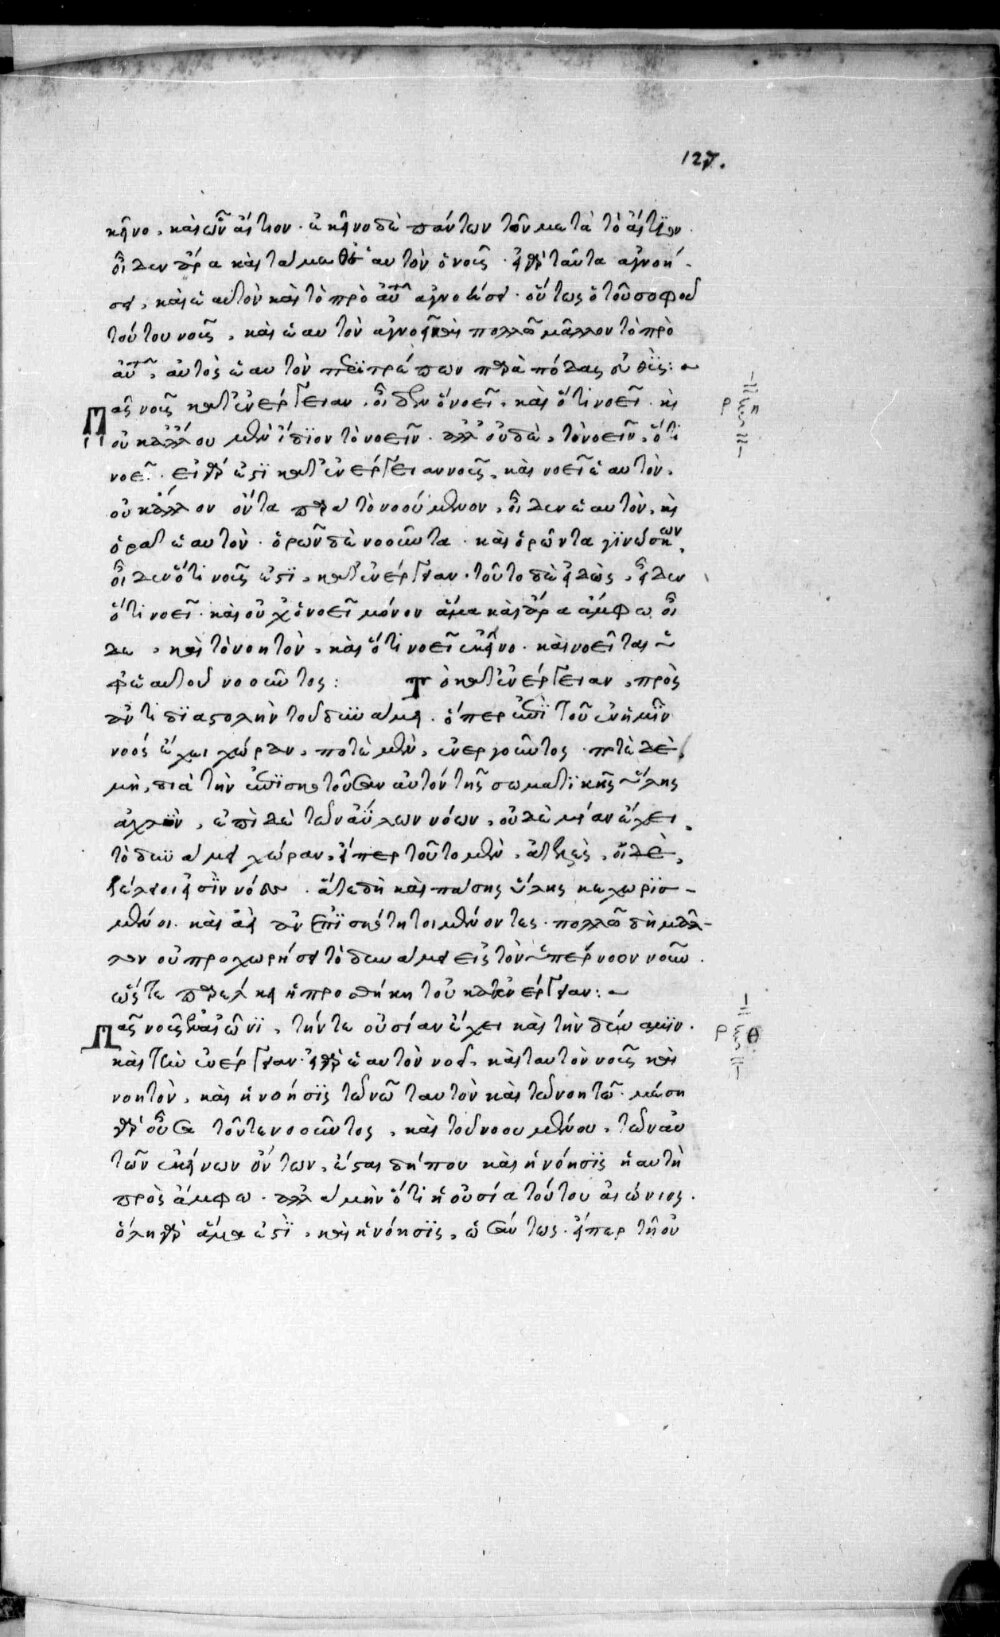 127.
κεῖνο, καὶ ὧν αἴτιον· ἐκεῖνο δὲ πάντων τῶν μετὰ τὸ αἴτιον.
οἶδεν ἄρα καὶ τὰ μεθ' ἑαυτὸν ὁ νοῦς· εἰ γὰρ ταῦτα ἀγνοή-
σει, καὶ ἑαυτὸν καὶ τὸ πρὸ αὐτοῦ ἀγνοήσει· οὕτως ὁ τοῦ σοφοῦ
τούτου νοῦς, καὶ ἑαυτὸν ἀγνοεῖ καὶ πολλῶ μᾶλλον τὸ πρὸ
αὐτοῦ, αὐτὸς ἑαυτὸν περιτρέπων παρὰ πόδας εὐθύς: ~
ρξη
Πᾶς νοῦς κατ' ἐνέργειαν, οἶδεν ὃ νοεῖ, καὶ ὅτι νοεῖ· καὶ
οὐκ ἄλλου μὲν ἴδιον τὸ νοεῖν· ἀλλ' οὐδὲ, τὸ νοεῖν, ὅτι
νοεῖ. εἰ γὰρ ἐστὶ κατ' ἐνέργειαν νοῦς, καὶ νοεῖ ἑαυτὸν,
οὐκ ἄλλον ὄντα παρὰ τὸ νοούμενον, οἶδεν ἑαυτὸν, καὶ
ὁρᾶ ἑαυτὸν· ὁρῶν δὲ νοοῦντα· καὶ ὁρῶντα γινώσκων,
οἶδεν ὅτι νοῦς ἐστὶ, κατ' ἐνέργειαν· τοῦτο δὲ εἰδὼς, οἶδεν
ὅτι νοεῖ· καὶ οὐχ ὃ νοεῖ μόνον ἅμα καὶ ἄρα ἄμφω οἶ
δε, καὶ τὸ νοητὸν, καὶ ὅτι νοεῖ ἐκεῖνο· καὶ νοεῖται ὑ
φ' ἑαυτοῦ νοοῦντος: Τὸ κατ' ἐνέργειαν, πρὸς
ἀντιδιαστολὴν τοῦ δυνάμει· ὅπερ ἐπὶ τοῦ ἐν ἡμῖν
νοός ἔχει χώραν, ποτὲ μὲν, ἐνεργοῦντος· ποτὲ δὲ,
μὴ, διὰ τὴν ἐπισκοτοῦσαν αὐτόν τῆς σωματικῆς ὕλης
ἀχλὺν, ἐπὶ δὲ τῶν ἀΰλων νόων, οὐδεμίαν ἔχει,
τὸ δυνάμει χώραν, εἴπερ τοῦτο μὲν, ἀτελὲς, οἱ δὲ,
τέλειοι εἰσὶν νόες. ἅτε δὴ καὶ πάσης ὕλης κεχωρισ-
μένοι. καὶ ἀεὶ ἀνεπισκότητοι μένοντες. πολλῶ δὴ μᾶλ-
λον οὐ προχωρήσει τὸ δυνάμει εἰς τὸν ὑπέρνοον νοῦν.
ὥστε παρέλκει ἡ προσθήκη τοῦ κατ' ἐνέργειαν: ~
ρξθ
Πᾶς νοῦς ἐν αἰῶνι, τήν τε οὐσίαν ἔχει καὶ τὴν δύναμιν.
καὶ τὴν ἐνέργειαν· εἰ γὰρ ἑαυτὸν νοεῖ, καὶ ταυτὸν νοῦς καὶ
νοητὸν, καὶ ἡ νόησις τῶ νῶ ταυτὸν καὶ τῶ νοητῶ· μέση
γὰρ οὖσα τοῦ τε νοοῦντος, καὶ τοῦ νοουμένου, τῶν αὐ
τῶν ἐκείνων ὄντων, ἔσται δήπου καὶ ἡ νόησις ἡ αὐτὴ
πρὸς ἄμφω· ἀλλὰ μὴν ὅτι ἡ οὐσία τούτου αἰώνιος.
ὅλη γὰρ ἅμα ἐστὶ, καὶ ἡ νόησις, ὡσαύτως· εἴπερ τῆ οὐ